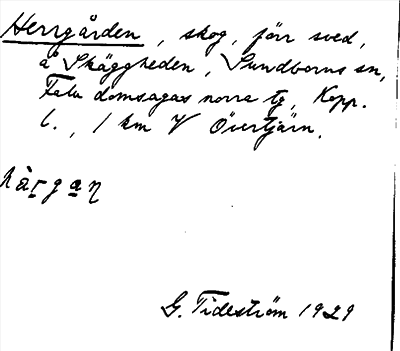 Herrgården, skog, förr sved,
å Skäggheden, Sundborns sn,
Falu domsagas norra tg, Kopp.
l., 1 km V Övertjärn.
hàrgan
G. Tideström 1929